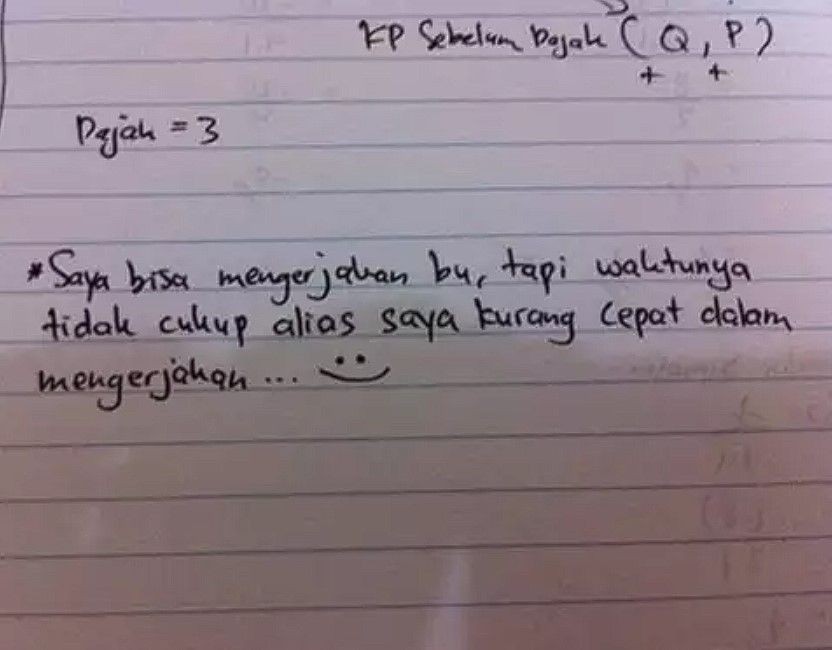 KP Sebelum Pajak (Q, P)
+ +
Pajak = 3
*Saya bisa mengerjakan bu, tapi waktunya
tidak cukup alias saya kurang cepat dalam
mengerjakan ...